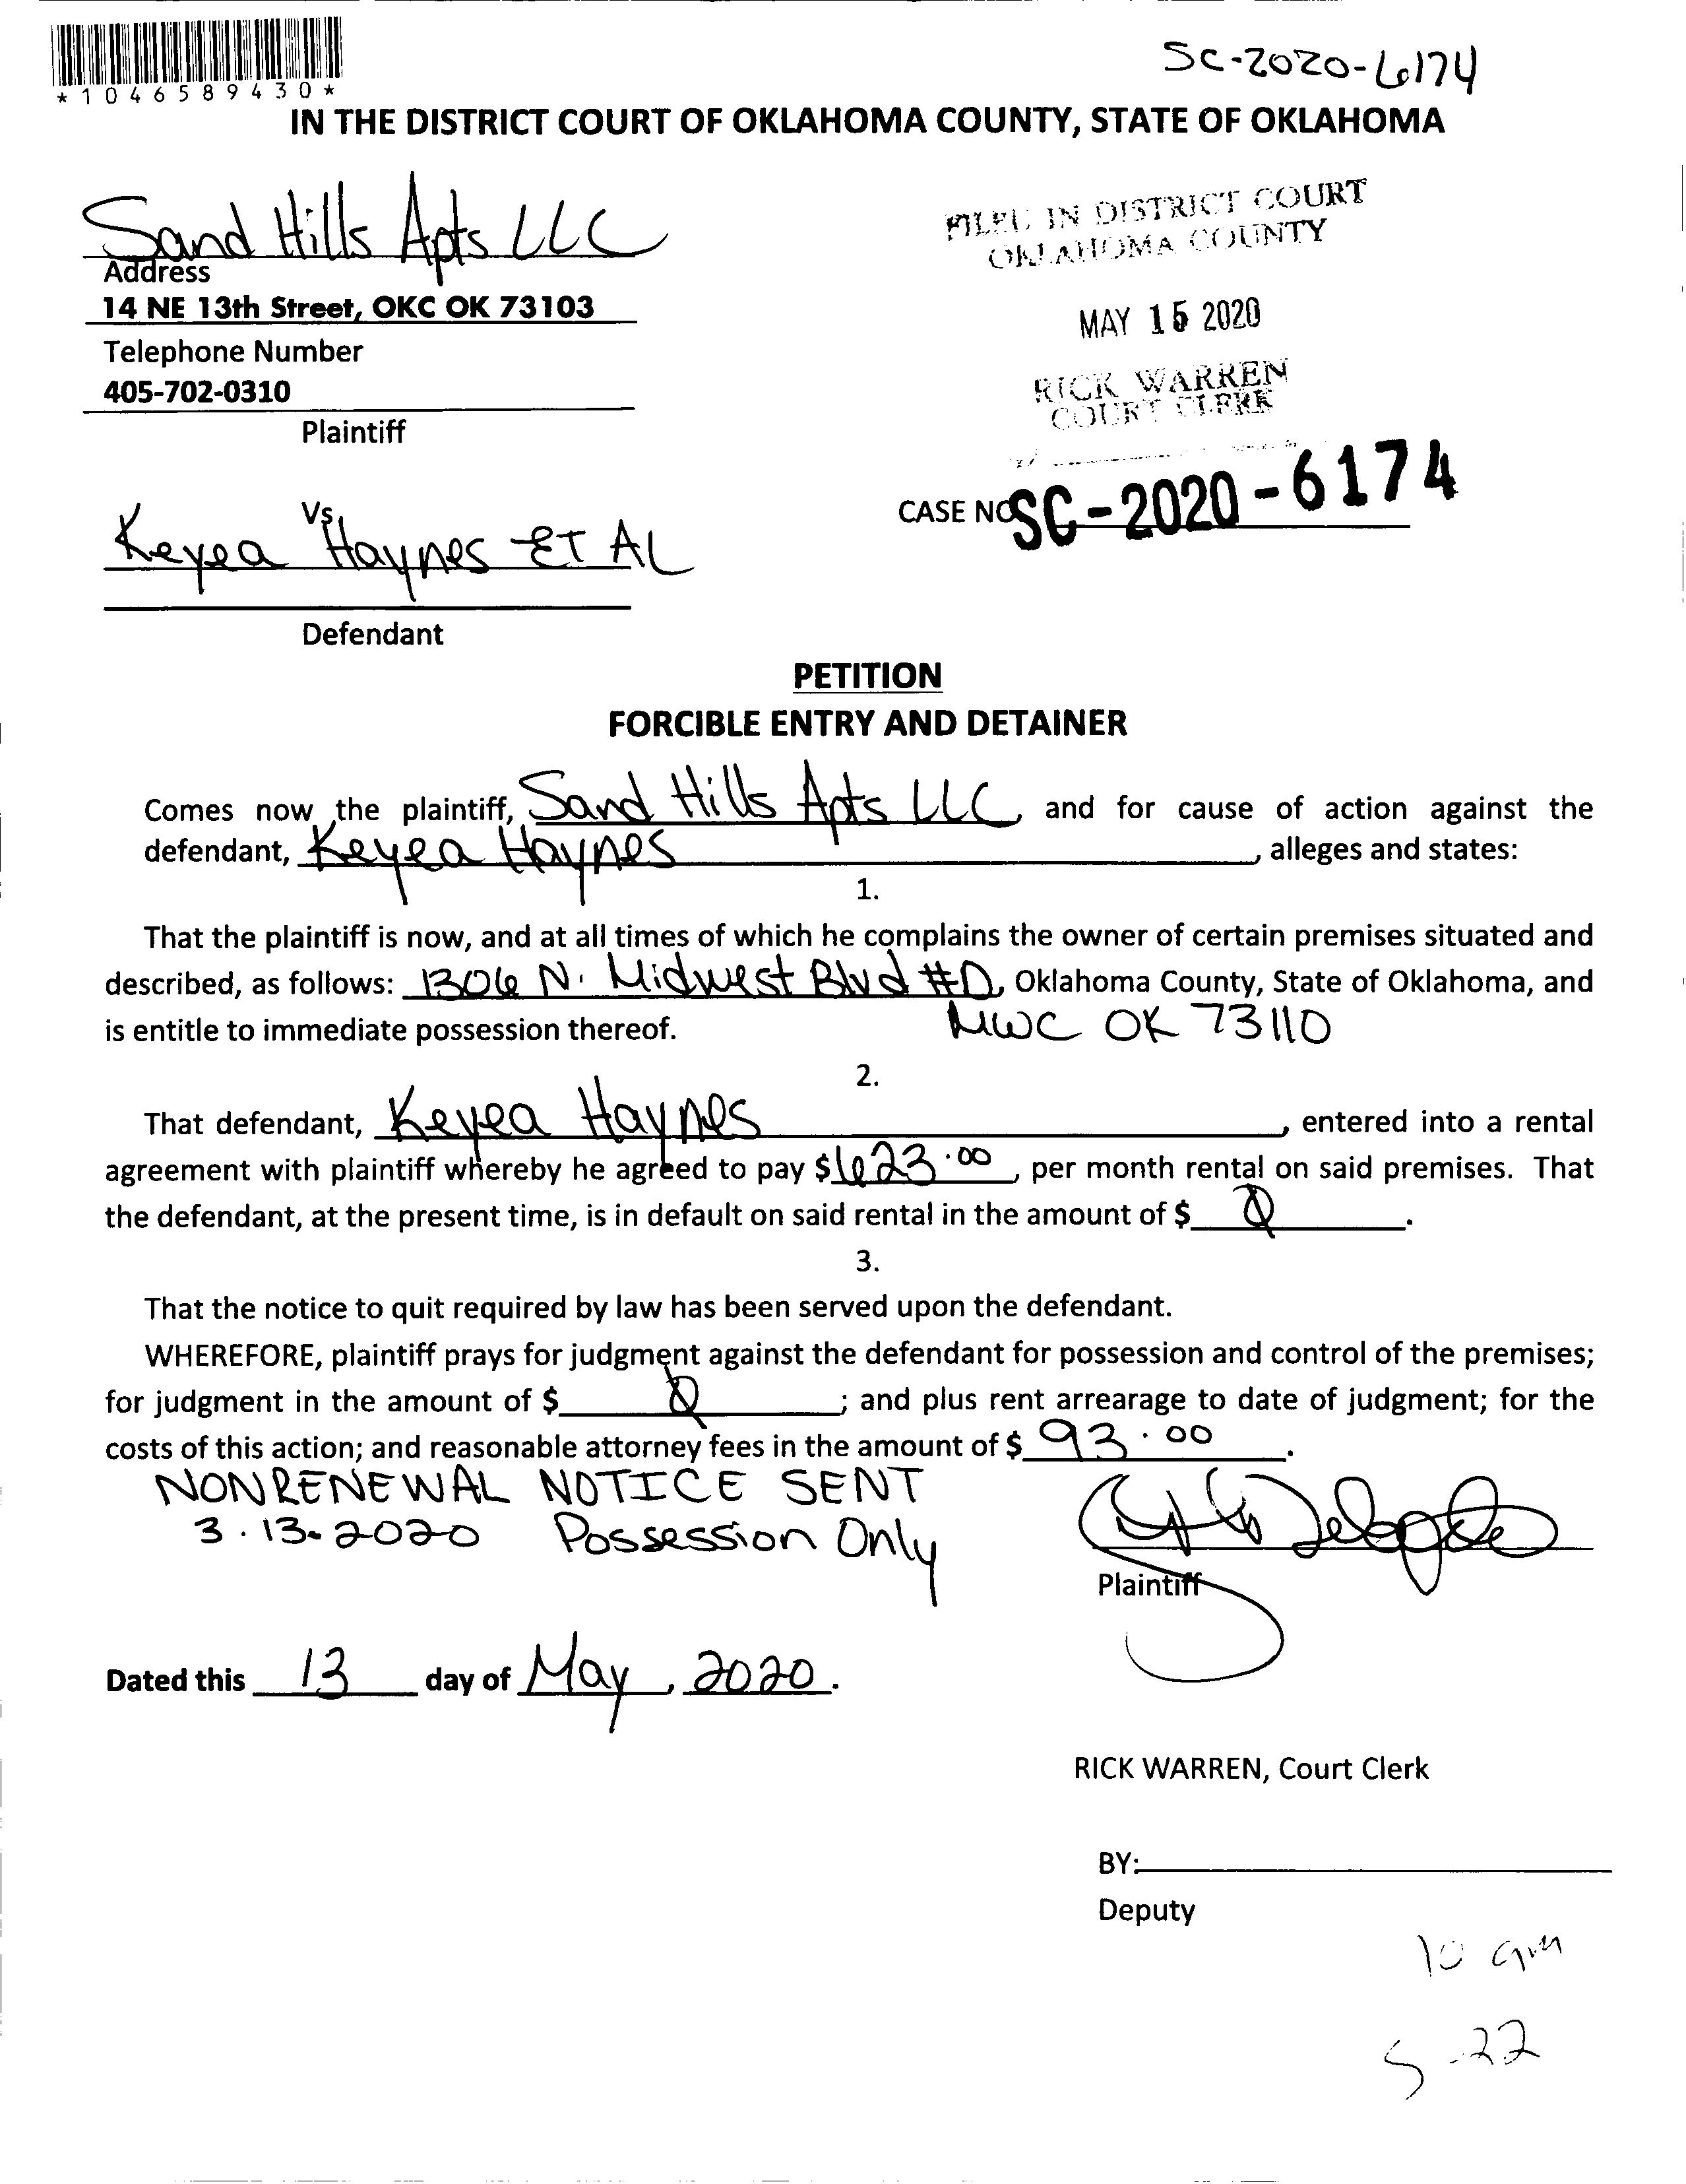 SC-2020-6174
*1046589430*
IN THE DISTRICT COURT OF OKLAHOMA COUNTY, STATE OF OKLAHOMA
Sand Hills Apts LLC
Address
14 NE 13th Street, OKC OK 73103
Telephone Number
405-702-0310
Plaintiff
FILED IN DISTRICT COURT
OKLAHOMA COUNTY
MAY 15 2020
RICK WARREN
COURT CLERK
CASE NO SC-2020-6174
Vs.
Keyea Haynes ET AL
Defendant
PETITION
FORCIBLE ENTRY AND DETAINER
Comes now the plaintiff, Sand Hills Apts LLC, and for cause of action against the
defendant, Keyea Haynes, alleges and states:
1.
That the plaintiff is now, and at all times of which he complains the owner of certain premises situated and
described, as follows: 1306 N. Midwest Blvd #D, Oklahoma County, State of Oklahoma, and
is entitle to immediate possession thereof. MWC OK 73110
2.
That defendant, Keyea Haynes, entered into a rental
agreement with plaintiff whereby he agreed to pay $623.00, per month rental on said premises. That
the defendant, at the present time, is in default on said rental in the amount of $ 0.
3.
That the notice to quit required by law has been served upon the defendant.
WHEREFORE, plaintiff prays for judgment against the defendant for possession and control of the premises;
for judgment in the amount of $ 0; and plus rent arrearage to date of judgment; for the
costs of this action; and reasonable attorney fees in the amount of $ 93.00.
NONRENEWAL NOTICE SENT
3.13.2020 Possession Only
Plaintiff
Dated this 13 day of May, 2020.
RICK WARREN, Court Clerk
BY:
Deputy
10 am
5-22